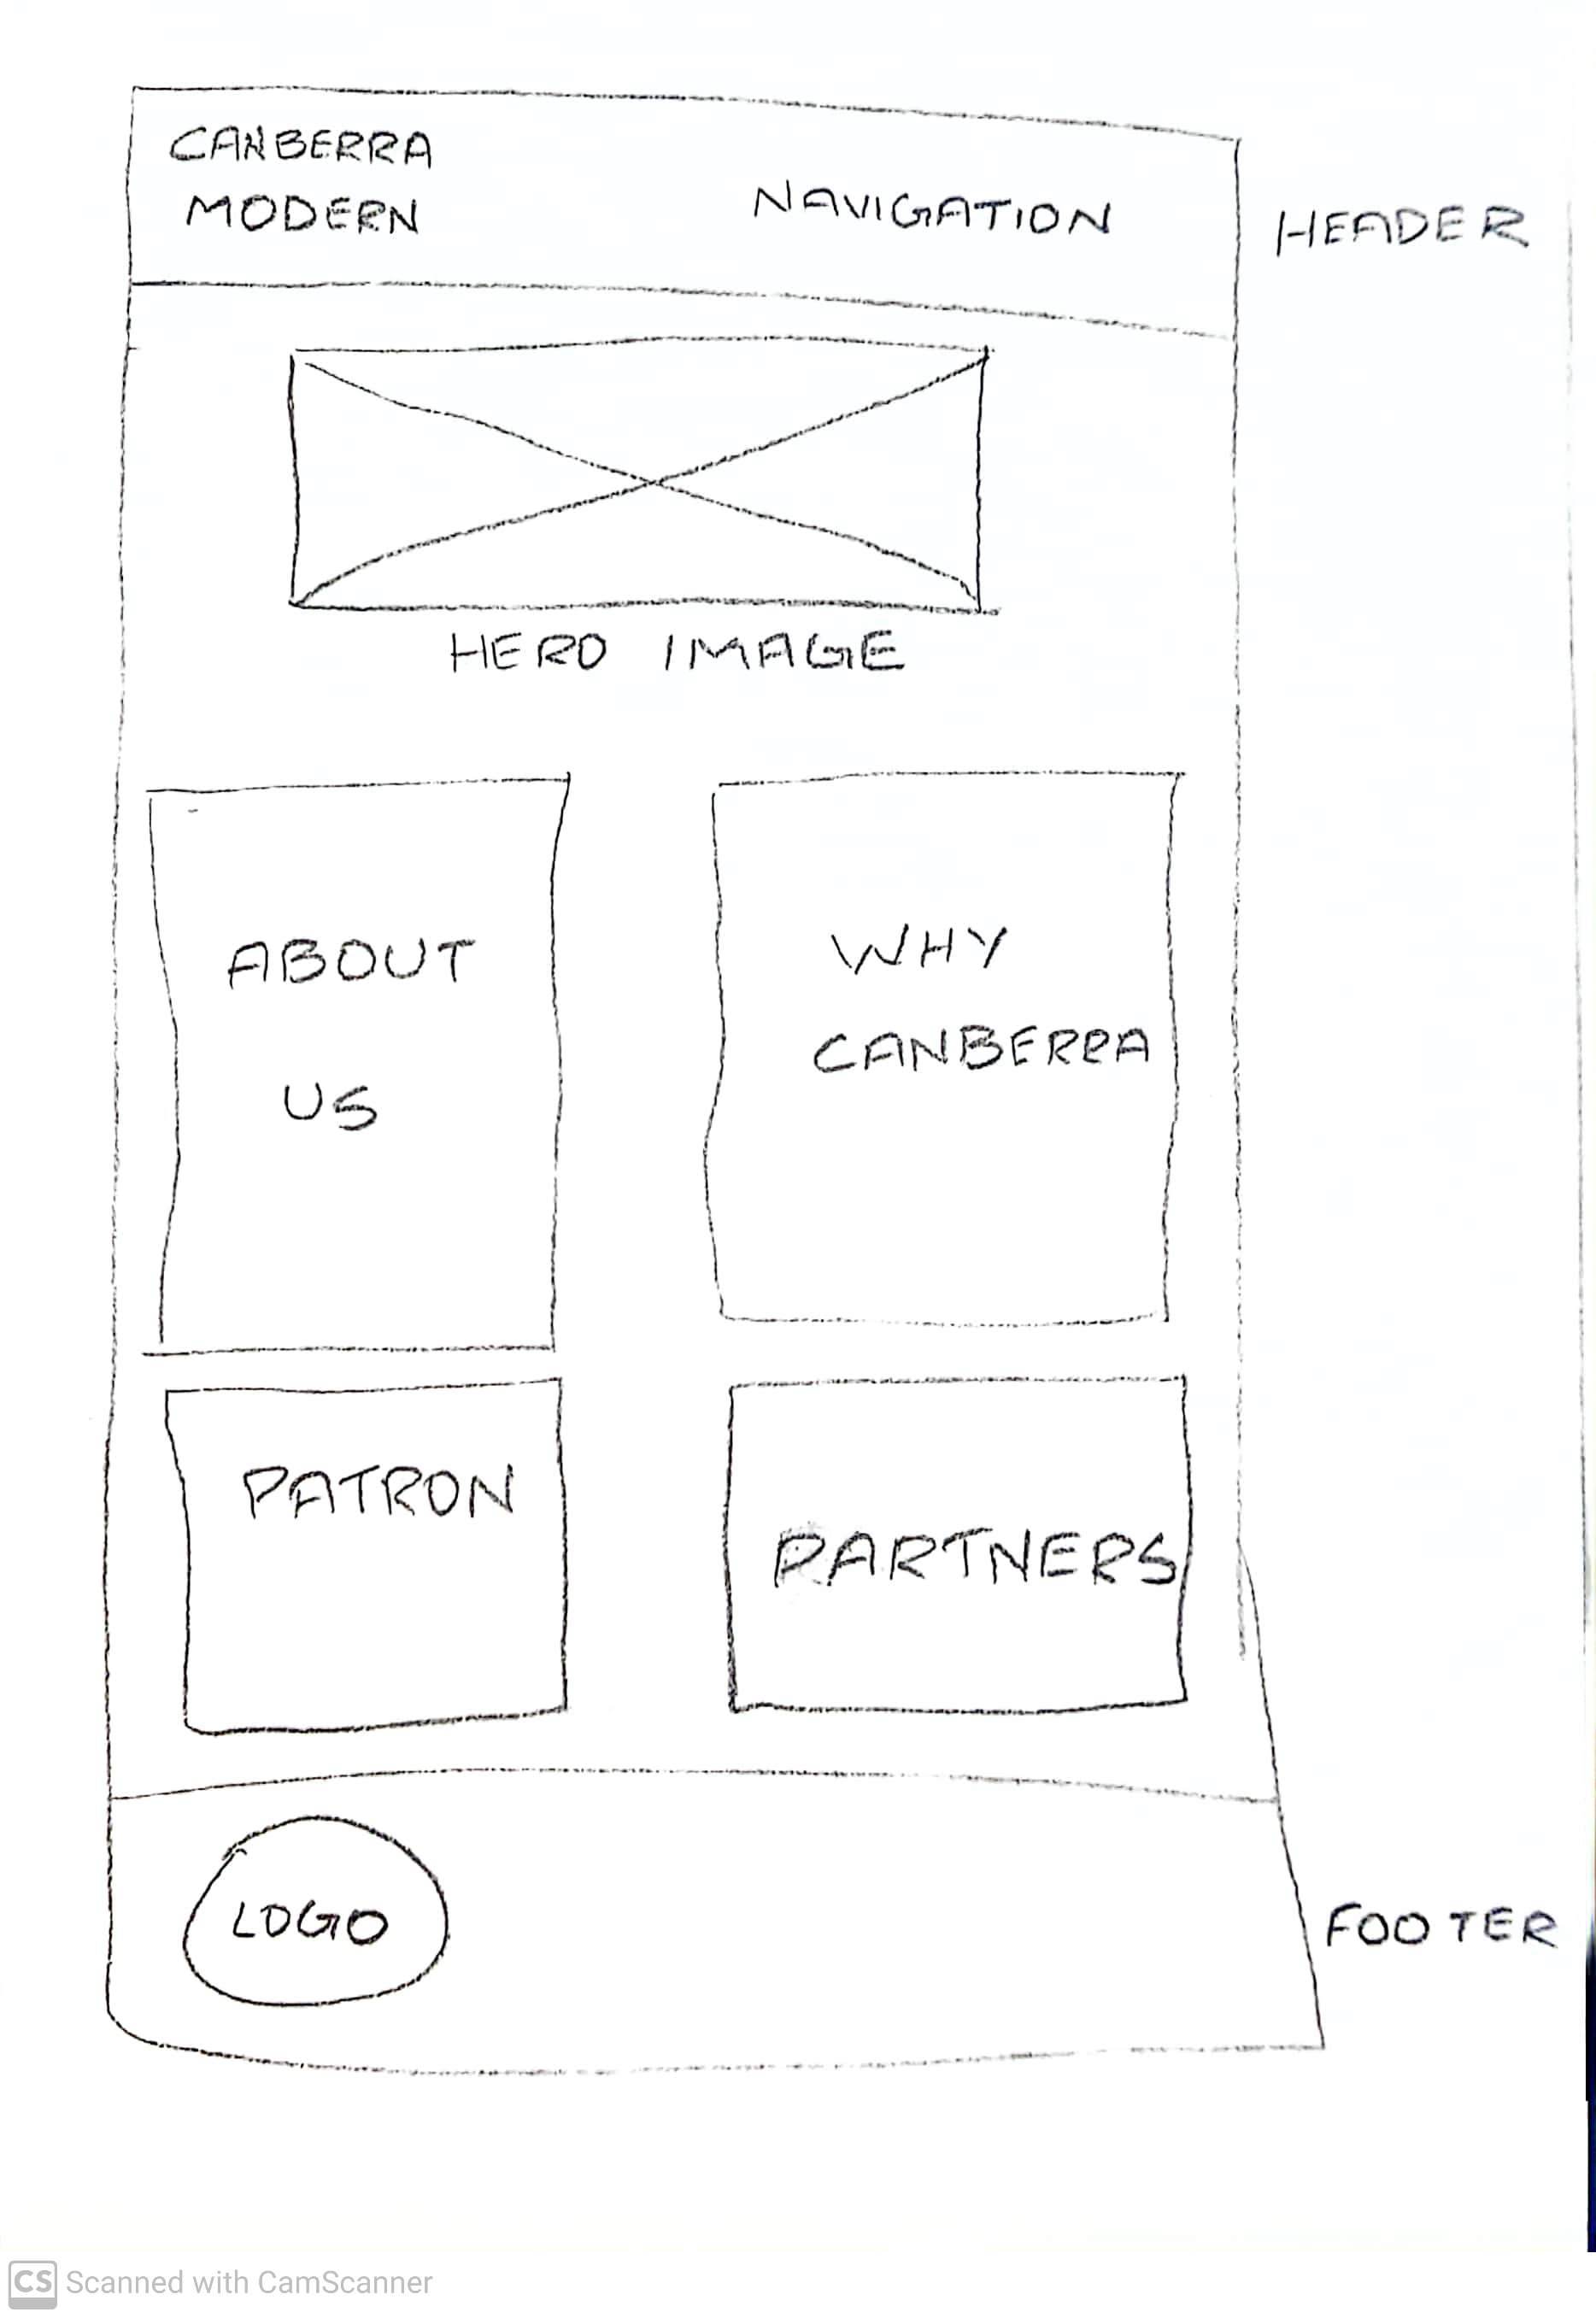 CANBERRA
MODERN
NAVIGATION
HEADER
HERO IMAGE
ABOUT
US
WHY
CANBERRA
PATRON
PARTNERS
LOGO
FOOTER
CS Scanned with CamScanner